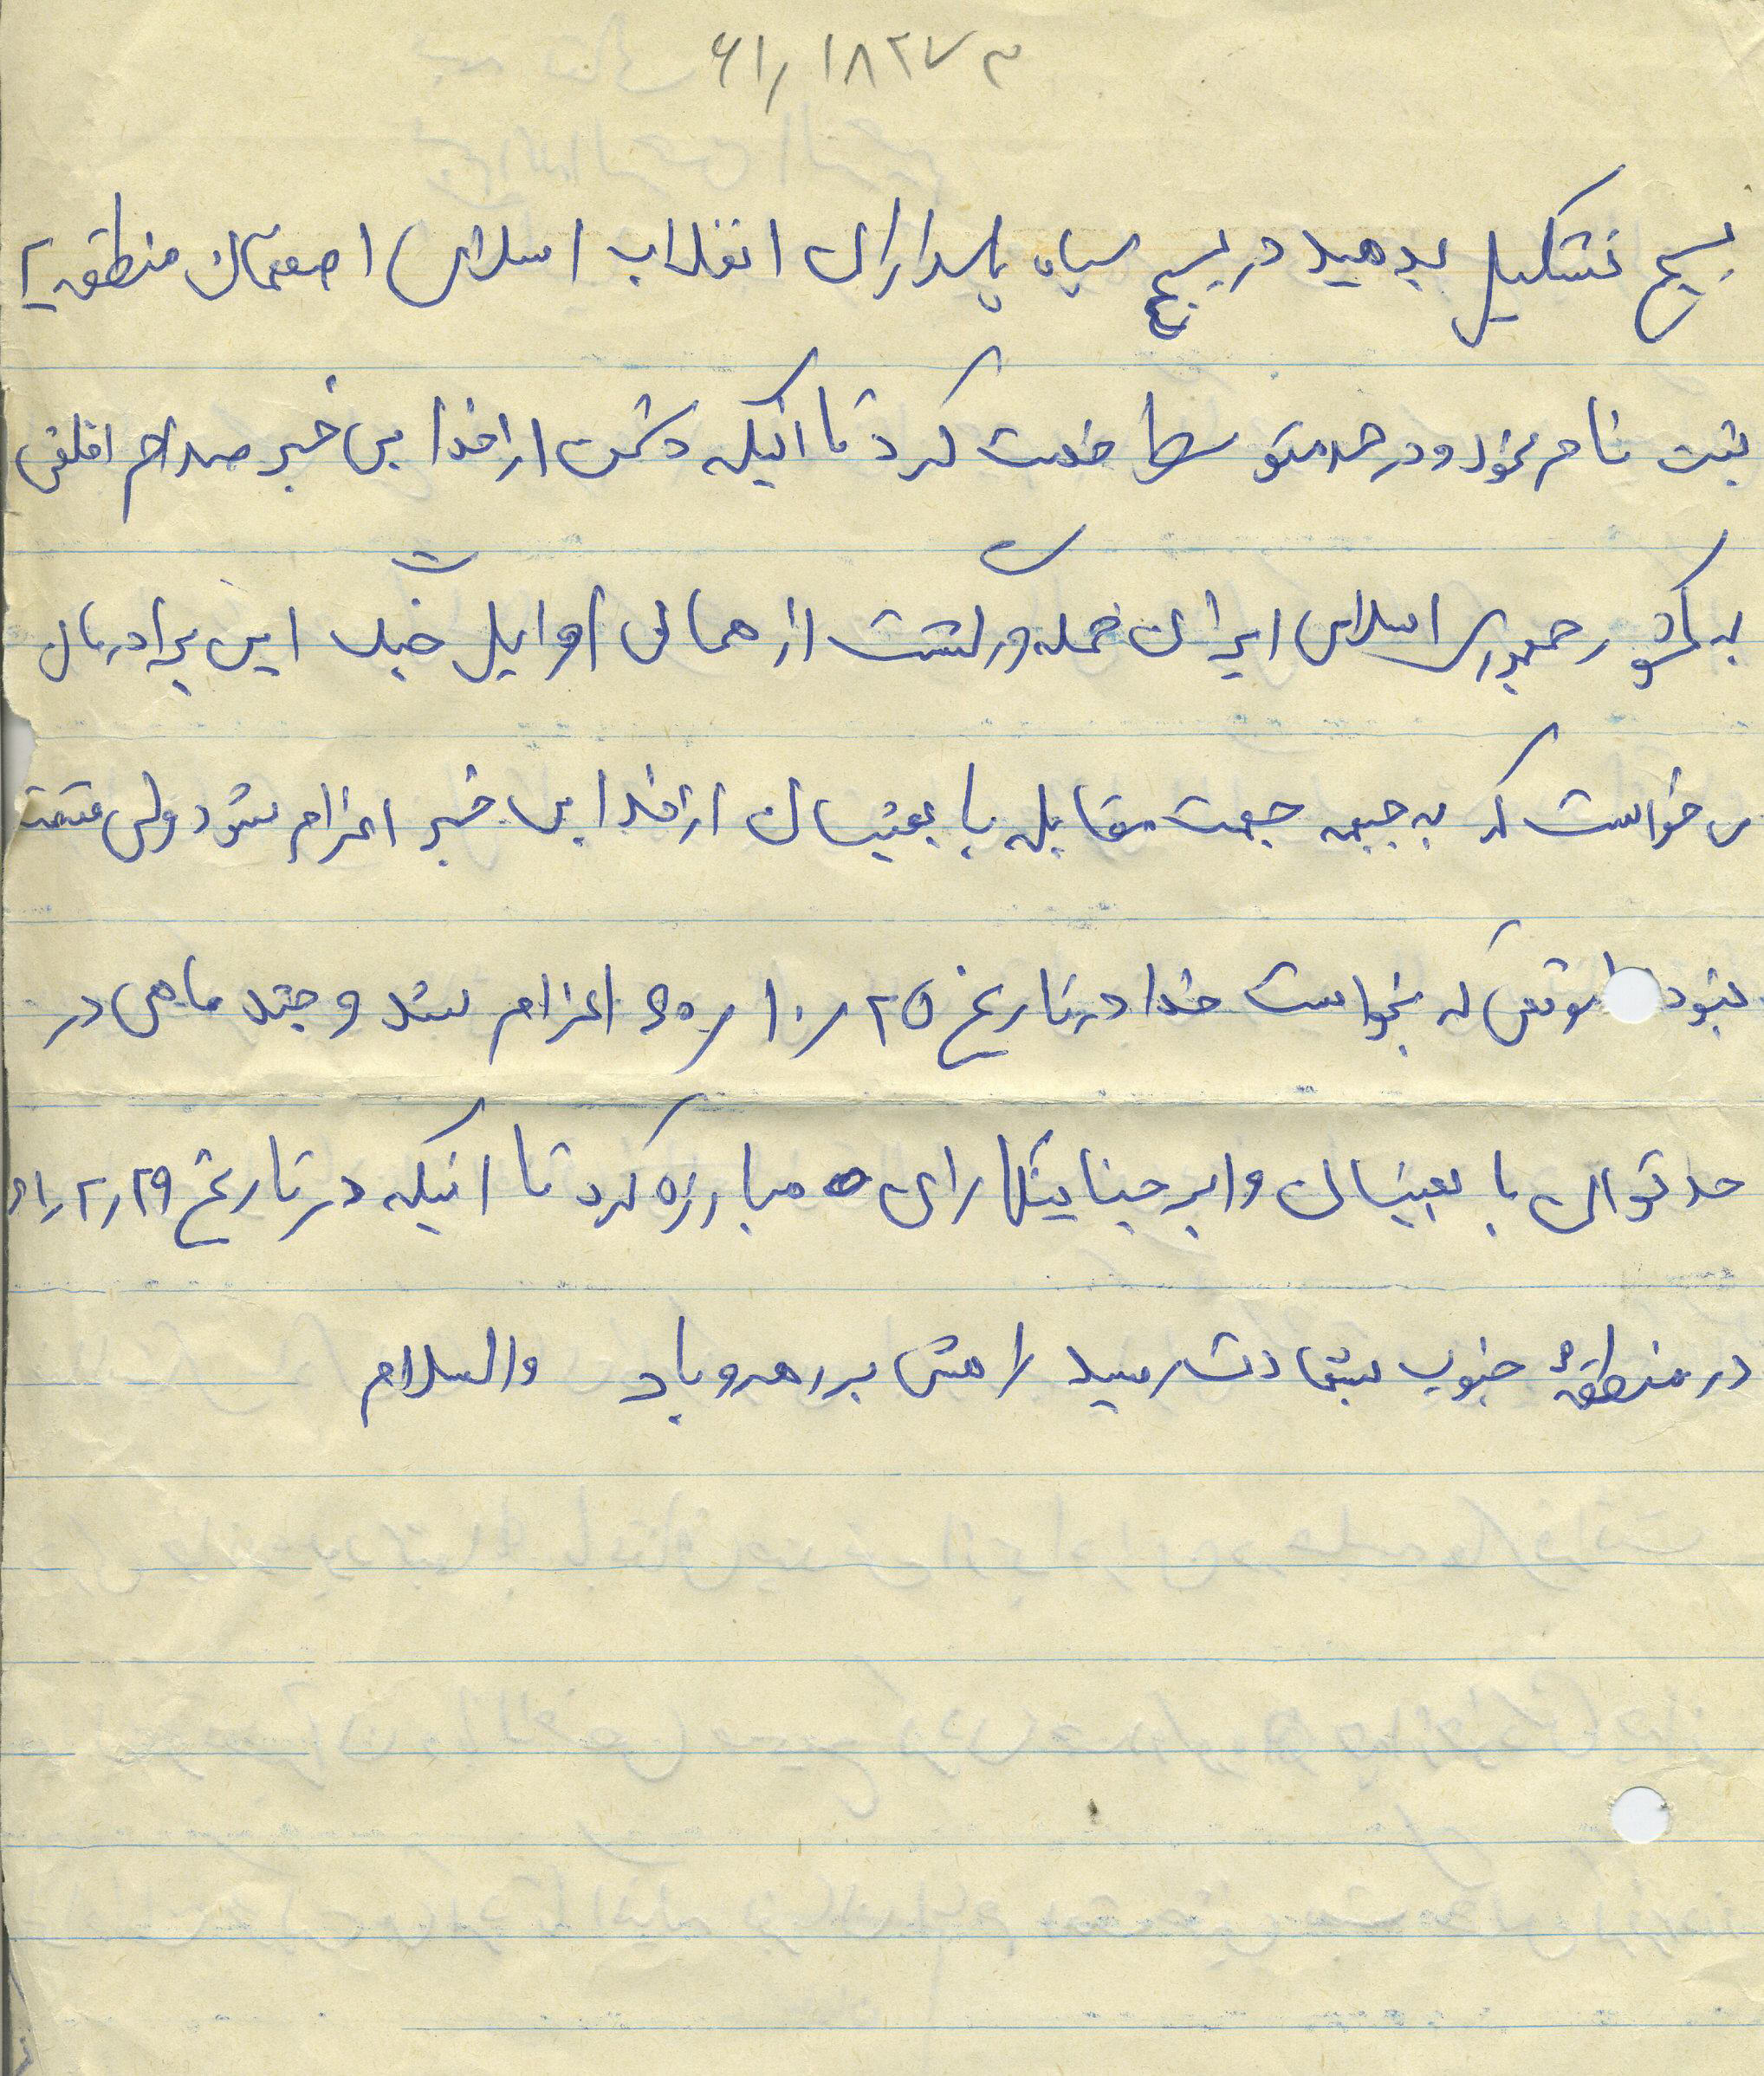 ۶۱/۱۸۲۷۳
بسیج تشکیل بدهید در بسیج سپاه پاسداران انقلاب اسلامی اصفهان منطقه ۲
ثبت نام نمود و در حد متوسط خدمت کرد تا اینکه دشمن از خدا بی خبر صدام افلقی
به کشور جمهوری اسلامی ایران حمله ور گشت از همان اوایل جنگ این برادرمان
می خواست که به جبهه جهت مقابله با بعثیان از خدا بی خبر اعزام شود ولی قسمت
نبود تا موقعی که بخواست خدا در تاریخ ۶۰/۱۰/۲۵ اعزام شد و چند ماهی در
حد توان با بعثیان و ابر جنایتکاران مبارزه کرد تا اینکه در تاریخ ۶۱/۲/۲۹
در منطقهٔ جنوب بشهادت رسید راهش پر رهرو باد والسلام